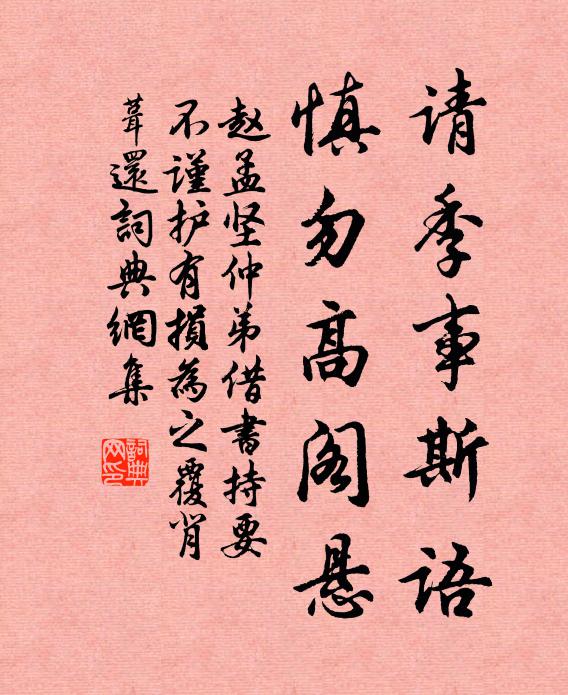 请季事斯语
慎勿高阁悬
赵孟坚仲弟借书持要
不谨护有损為之覆背
葺還詞典網集
詞典网印